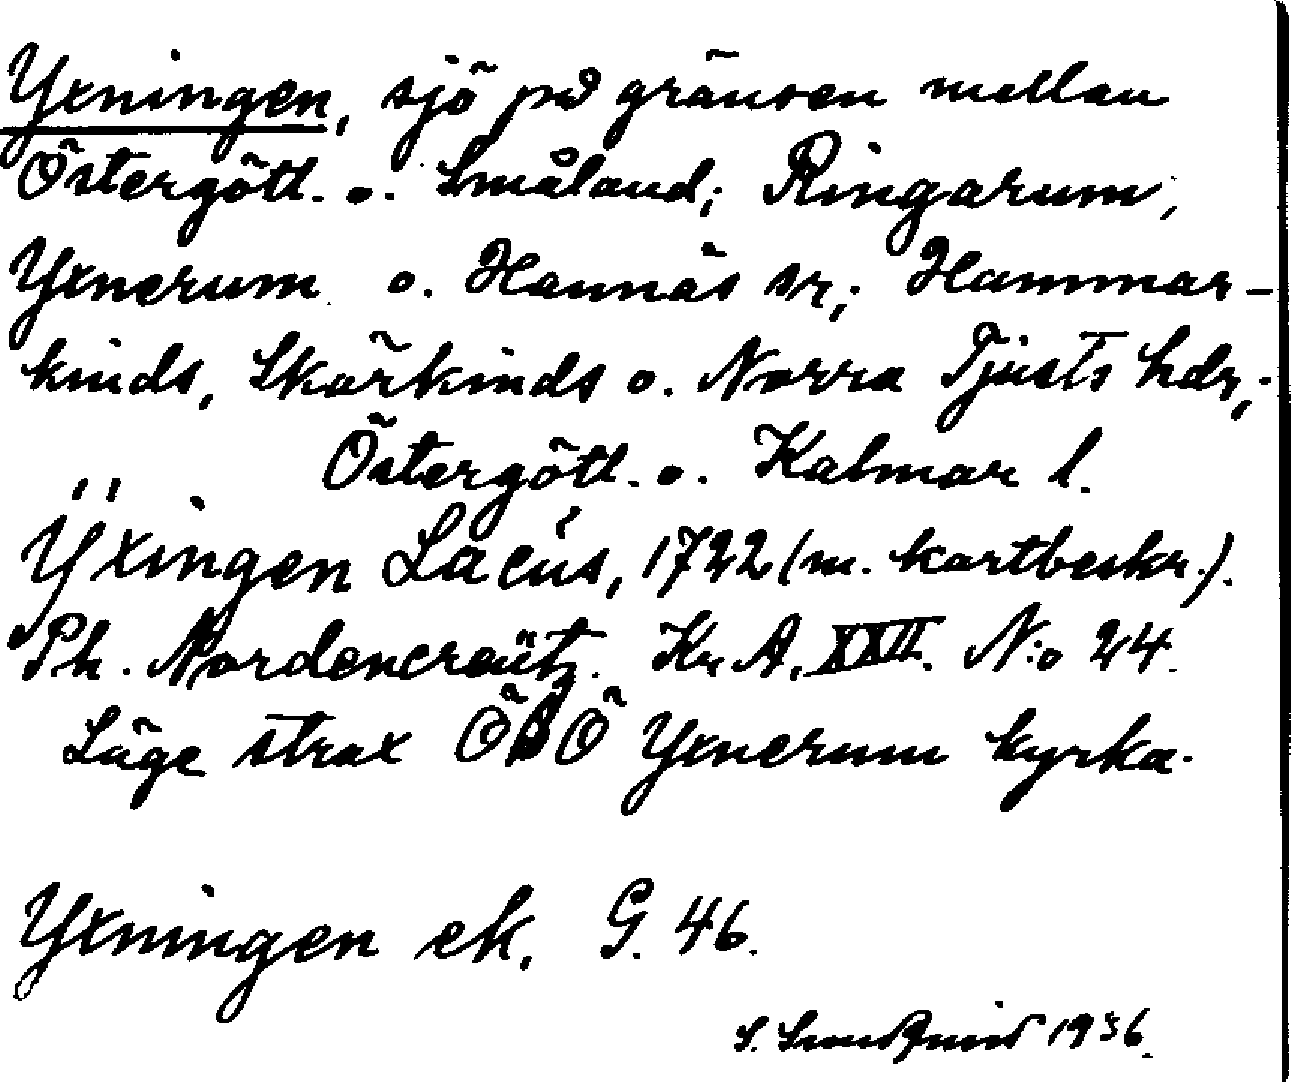 Yxningen, sjö på gränsen mellan
Östergötl. o. Småland; Ringarum,
Yxnerum o. Hannäs sr; Hammar-
kinds, Skärkinds o. Norra Tjusts hdr;
Östergötl. o. Kalmar l.
Ÿxingen Lacus, 1722 (m. kartbeskr.).
Ph. Nordencreütz. Kr. A. XXII. N:o 24.
Läge strax ÖSÖ Yxnerum kyrka.
Yxningen ek. G. 46.
S. 1936.